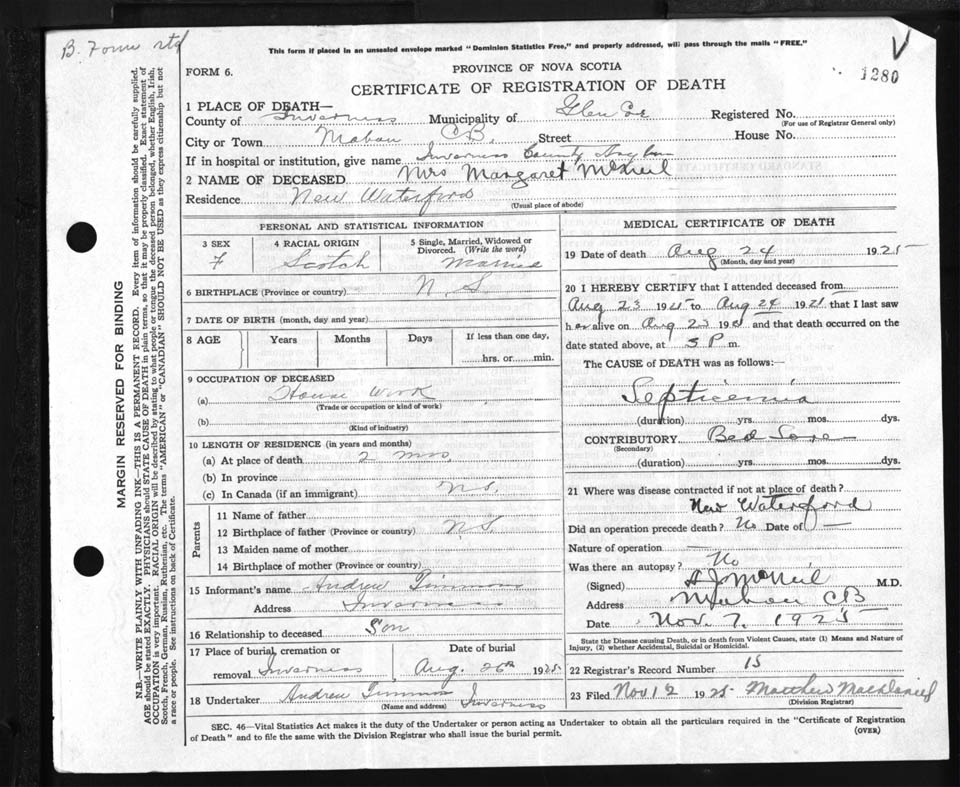 B. Form std
This form if placed in an unsealed envelope marked "Dominion Statistics Free," and properly addressed, will pass through the mails "FREE."
FORM 6.
PROVINCE OF NOVA SCOTIA
1280
CERTIFICATE OF REGISTRATION OF DEATH
1 PLACE OF DEATH—
County of Inverness Municipality of Registered No.
(For use of Registrar General only)
City or Town Mabou C B. Street House No.
If in hospital or institution, give name Inverness County Asylum
2 NAME OF DECEASED Mrs Margaret McNeil
Residence New Waterford
(Usual place of abode)
PERSONAL AND STATISTICAL INFORMATION
3 SEX
F
4 RACIAL ORIGIN
Scotch
5 Single, Married, Widowed or Divorced. (Write the word)
Married
6 BIRTHPLACE (Province or country) N. S
7 DATE OF BIRTH (month, day and year)
8 AGE Years Months Days If less than one day,
hrs. or min.
9 OCCUPATION OF DECEASED
(a) House Work
(Trade or occupation or kind of work)
(b)
(Kind of industry)
10 LENGTH OF RESIDENCE (in years and months)
(a) At place of death 2 mos.
(b) In province
(c) In Canada (if an immigrant) N.S.
Parents
11 Name of father
12 Birthplace of father (Province or country) N.S
13 Maiden name of mother
14 Birthplace of mother (Province or country)
15 Informant's name Andrew Timmons
Address Inverness
16 Relationship to deceased Son
17 Place of burial, cremation or removal Inverness
Date of burial
Aug. 26th 1925
18 Undertaker Andrew Timmons Inverness
(Name and address)
MEDICAL CERTIFICATE OF DEATH
19 Date of death Aug 24 1925
(Month, day and year)
20 I HEREBY CERTIFY that I attended deceased from
Aug 23 192 to Aug 24 192 that I last saw
h er alive on Aug 23 192 and that death occurred on
date stated above, at 5 P m.
The CAUSE of DEATH was as follows:—
Septicemia
(duration) yrs. mos. dys.
CONTRIBUTORY Bed Sore
(Secondary)
(duration) yrs. mos. dys.
21 Where was disease contracted if not at place of death?
New Waterford
Did an operation precede death? No Date of —
Nature of operation
Was there an autopsy? No
(Signed) A J McNeil M.D.
Address Mabou CB
Date Nov. 7. 1925
State the Disease causing Death, or in death from Violent Causes, state (1) Means and Nature of
Injury, (2) whether Accidental, Suicidal or Homicidal.
22 Registrar's Record Number 15
23 Filed Nov 12 1925 Matthew
(Division Registrar)
SEC. 46—Vital Statistics Act makes it the duty of the Undertaker or person acting as Undertaker to obtain all the particulars required in the "Certificate of Registration
of Death" and to file the same with the Division Registrar who shall issue the burial permit.
(OVER)
MARGIN RESERVED FOR BINDING
N.B.—WRITE PLAINLY WITH UNFADING INK—THIS IS A PERMANENT RECORD. Every item of information should be carefully supplied.
AGE should be stated EXACTLY. PHYSICIANS should STATE CAUSE OF DEATH in plain terms, so that it may be properly classified. Exact statement of
OCCUPATION is very important. RACIAL ORIGIN will be described by stating to what people or tongue the deceased person belonged, whether English, Irish,
Scotch, French, German, Russian, Ruthenian, etc. The terms "AMERICAN" or "CANADIAN" SHOULD NOT BE USED as they express citizenship but not
a race or people. See instructions on back of Certificate.